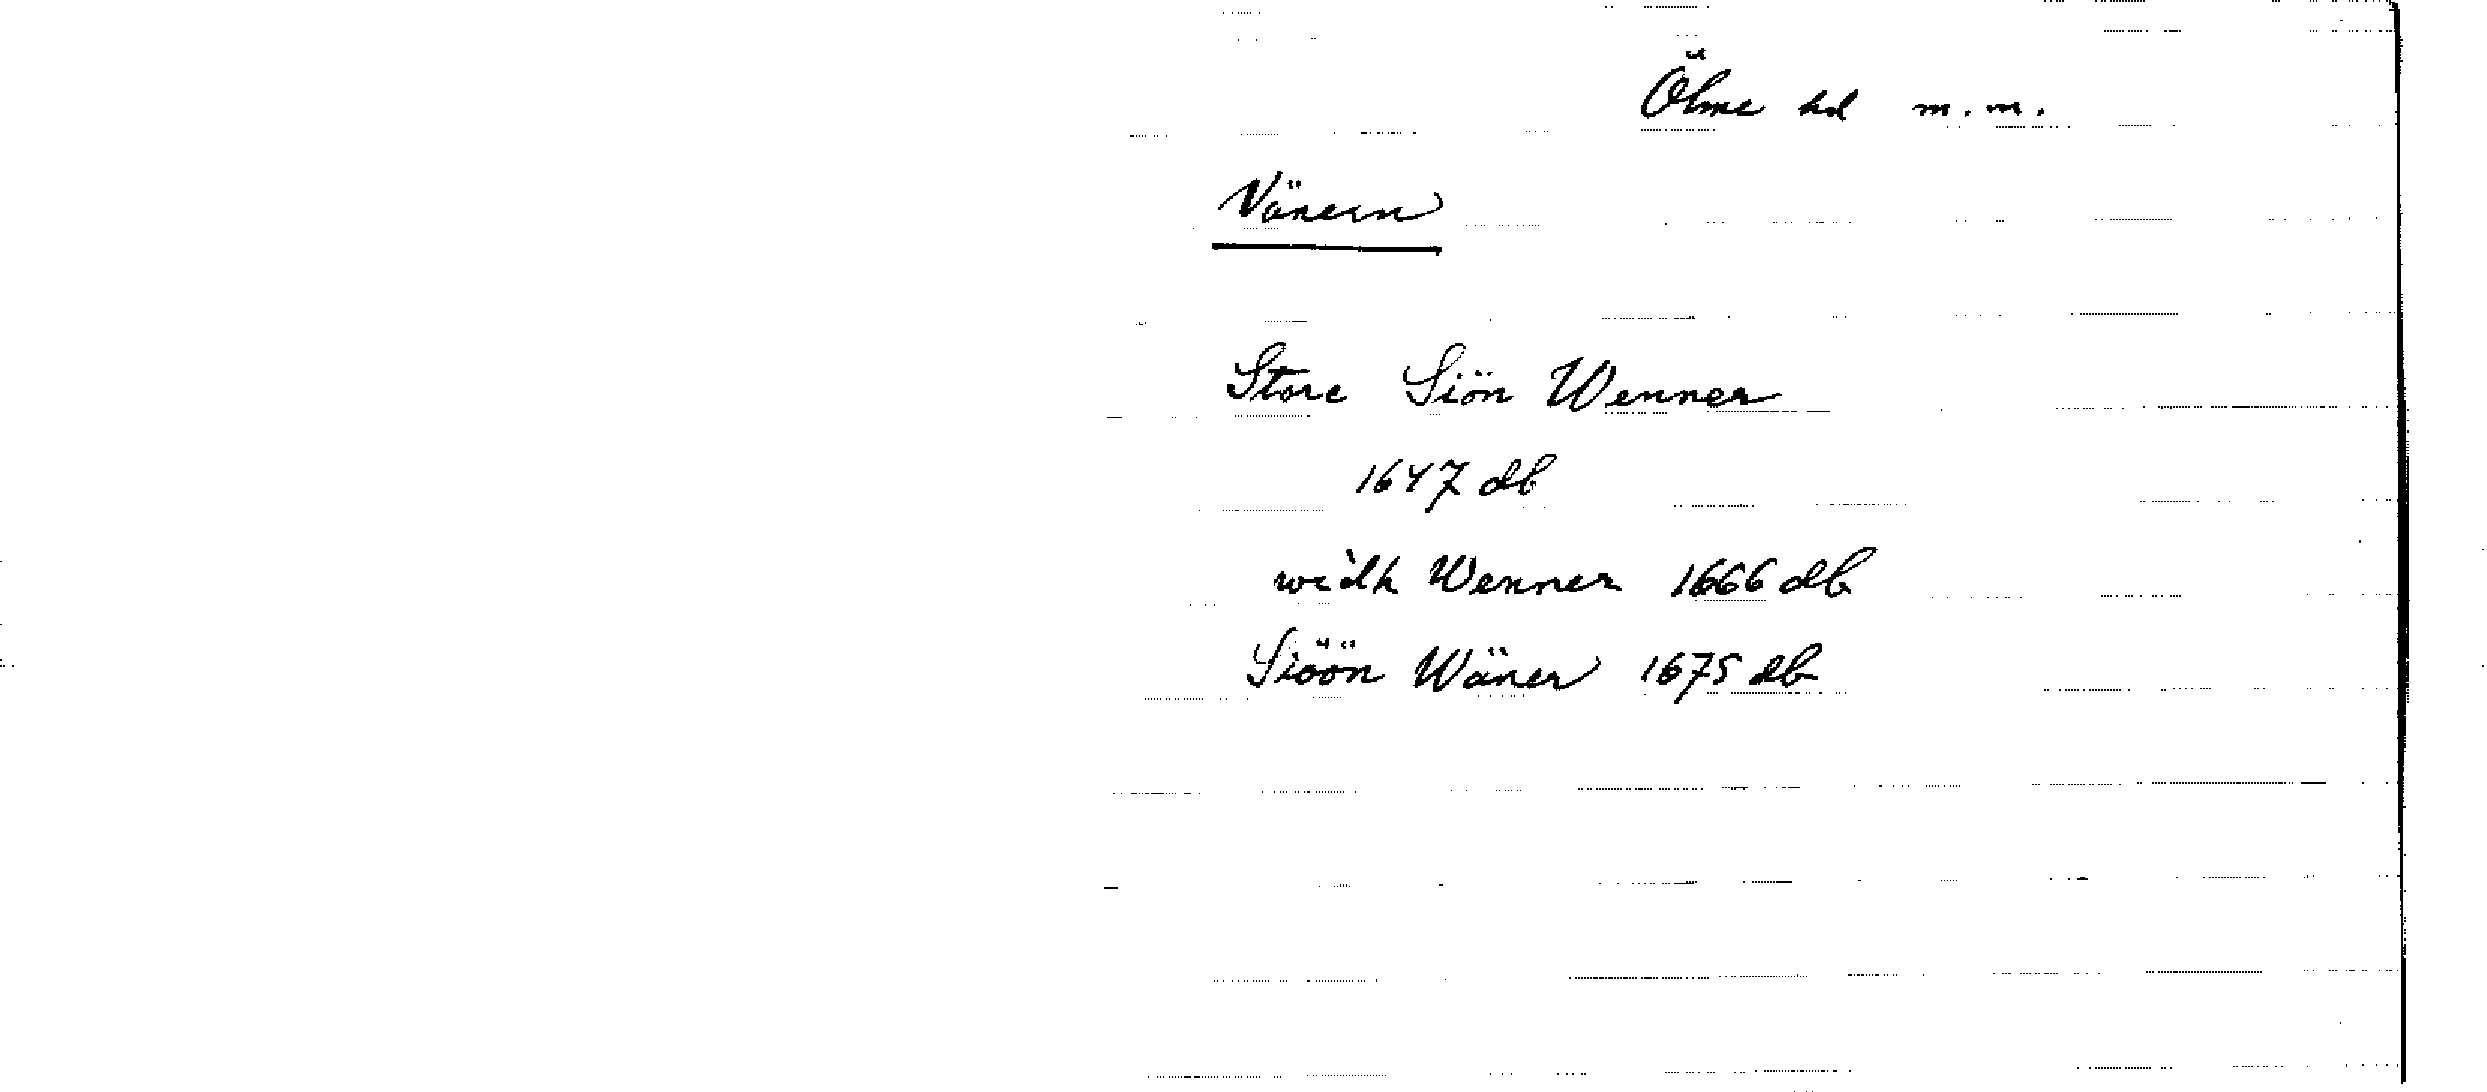 Ölme hd m.m.
Vänern
Store Siön Wenner
1647 db
widh Wenner 1666 db
Siöön Wäner 1675 db